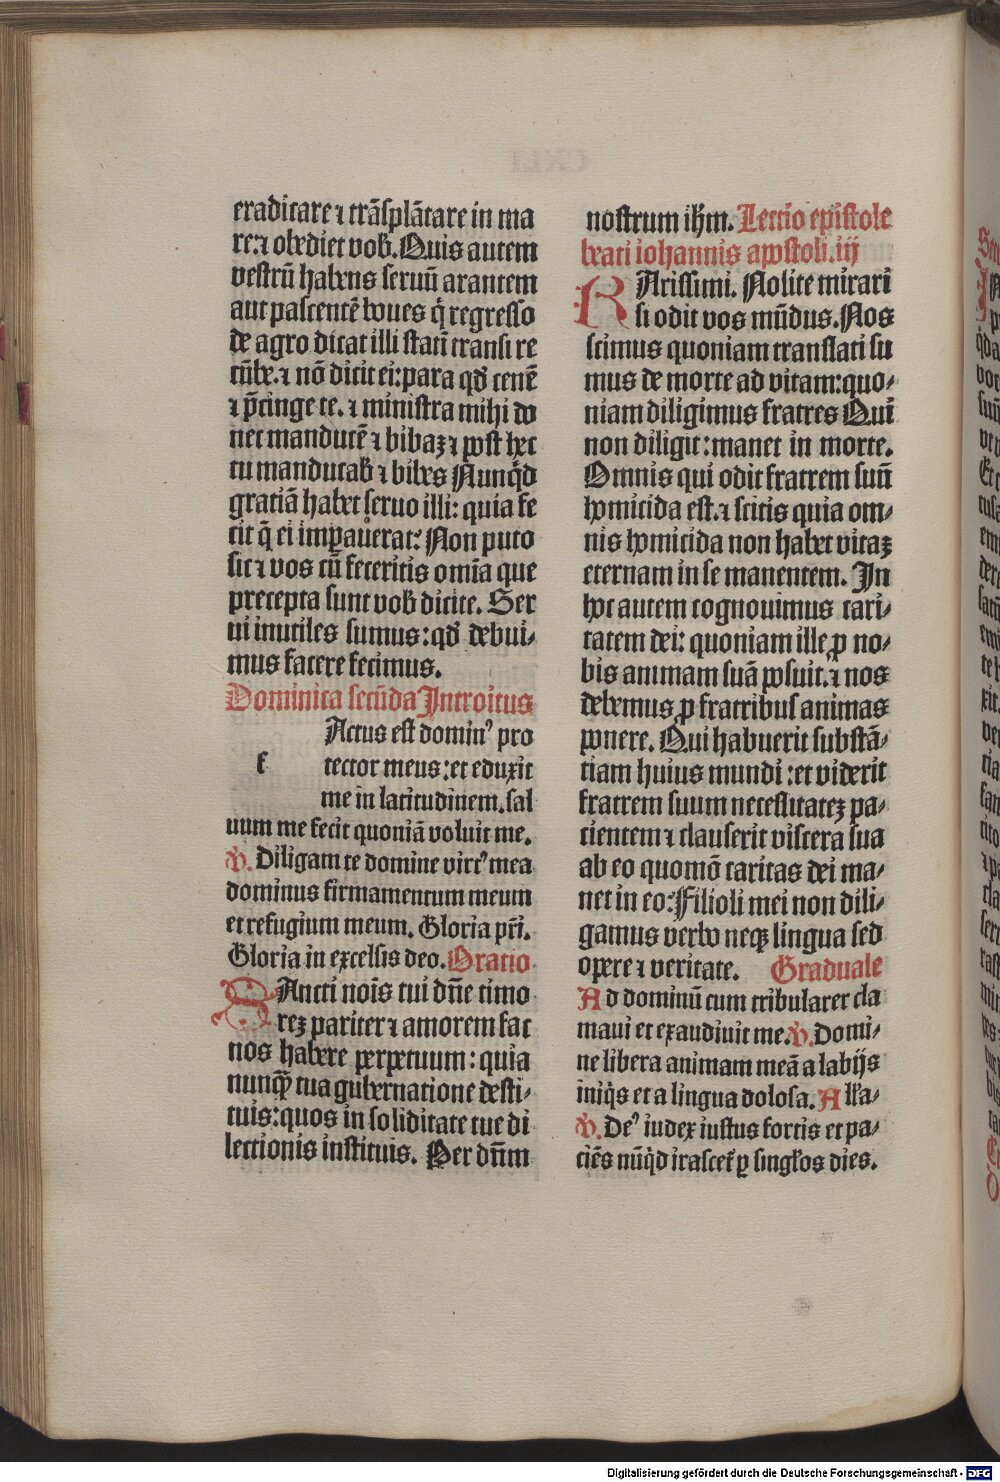 eradicare ⁊ trãsplãtare in ma
re:⁊ obediet vob. Quis autem
vestrũ habens seruũ arantem
aut pascentẽ boues q̃ regresso
de agro dicat illi statĩ transi re
cũbe.⁊ nõ dicit ei:para qd̃ cenẽ
⁊ p̃cinge te. ⁊ ministra mihi do
nec manducẽ ⁊ bibaꝫ ⁊ post hec
tu manducab ⁊ bibes Nunq̃d
gratiã habet seruo illi: quia fe
cit q̃ ei imꝑauerat: Non puto
sic ⁊ vos cũ feceritis omĩa que
precepta sunt vob dicite. Ser
ui inutiles sumus:qd̃ debui⸗
mus facere fecimus.
Dominica secũda Introitus
f
Actus est dominꝰ pro
tector meus:et eduxit
me in latitudinem.sal
uum me fecit quoniã voluit me.
℣. Diligam te domine virtꝰ mea
dominus firmamentum meum
et refugium meum. Gloria pr̃i.
Gloria in excelsis deo. Oratio
SAncti nõis tui dñe timo
reꝫ pariter ⁊ amorem fac
nos habere perpetuum: quia
nunqꝫ tua gubernatione desti⸗
tuis:quos in soliditate tue di
lectionis instituis. Per dñm
nostrum ihm̃. Lectio epistole
beati iohannis apostoli.iij
KArissimi. Nolite mirari
si odit vos mũdus. Nos
scimus quoniam translati su
mus de morte ad vitam:quo⸗
niam diligimus fratres Qui
non diligit:manet in morte.
Omnis qui odit fratrem suũ
homicida est.⁊ scitis quia om⸗
nis homicida non habet vitaꝫ
eternam in se manentem. In
hoc autem cognouimus cari⸗
tatem dei: quoniam ille ꝓ no⸗
bis animam suã posuit.⁊ nos
debemus ꝓ fratribus animas
ponere. Qui habuerit substã⸗
tiam huius mundi:et viderit
fratrem suum necessitateꝫ pa⸗
cientem ⁊ clauserit viscera sua
ab eo quomõ caritas dei ma⸗
net in eo: Filioli mei non dili⸗
gamus verbo neqꝫ lingua sed
opere ⁊ veritate. Graduale
Ad dominũ cum tribularer cla
maui et exaudiuit me.℣. Domi⸗
ne libera animam meã a labijs
iniq̃s et a lingua dolosa. Alla⸗
℣. Deꝰ iudex iustus fortis et pa⸗
ciẽs nũq̃d irascet̃ ꝑ singlos dies.
Digitalisierung gefördert durch die Deutsche Forschungsgemeinschaft - DFG